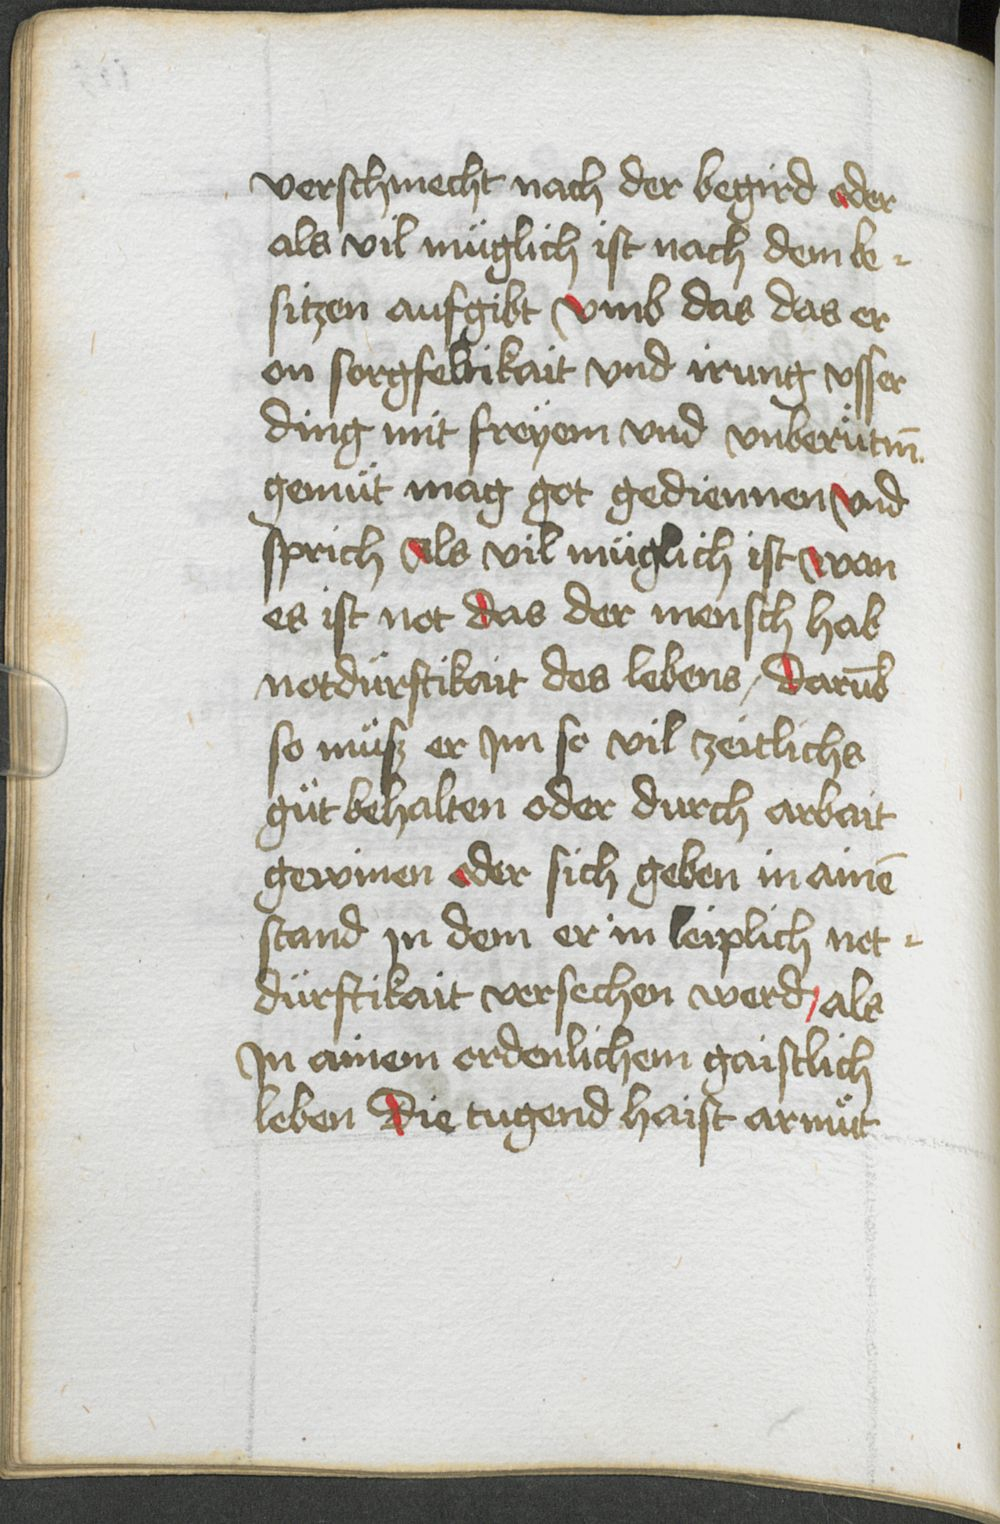 verschmecht nach der begird oder
als vil müglich ist nach dem be-
sitzen aufgibt vmb das das er
on sorgfeltikait vnd irung vsser
ding mit freÿem vnd vnberütm̄
gemüt mag got gediennen vnd
sprich als vil müglich ist wan
es ist not das der mensch hab
notdürftikait des lebens / darūb
so müsz er jm so vil zeitlichs
güt behalten oder durch arbait
gewinen oder sich geben in ainē
stand jn dem er in leiplich not-
dürftikait versechen werd / als
Jn ainem ordenlichem gaistlich
leben Die tugend haist armüt